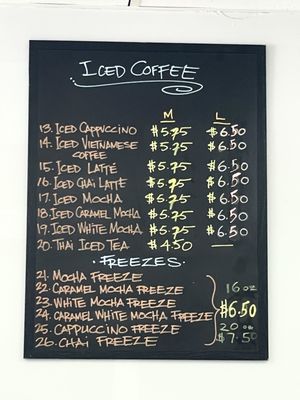 ICED COFFEE
M L
13. ICED CAPPUCCINO $5.75 $6.50
14. ICED VIETNAMESE COFFEE $5.75 $6.50
15. ICED LATTÉ $5.75 $6.50
16. ICED CHAI LATTE $5.75 $6.50
17. ICED MOCHA $5.75 $6.50
18. ICED CARAMEL MOCHA $5.75 $6.50
19. ICED WHITE MOCHA $5.75 $6.50
20. THAI ICED TEA $4.50 —
· FREEZES ·
21. MOCHA FREEZE
22. CARAMEL MOCHA FREEZE
23. WHITE MOCHA FREEZE
24. CARAMEL WHITE MOCHA FREEZE
25. CAPPUCCINO FREEZE
26. CHAI FREEZE
16 oz
$6.50
20 oz
$7.50